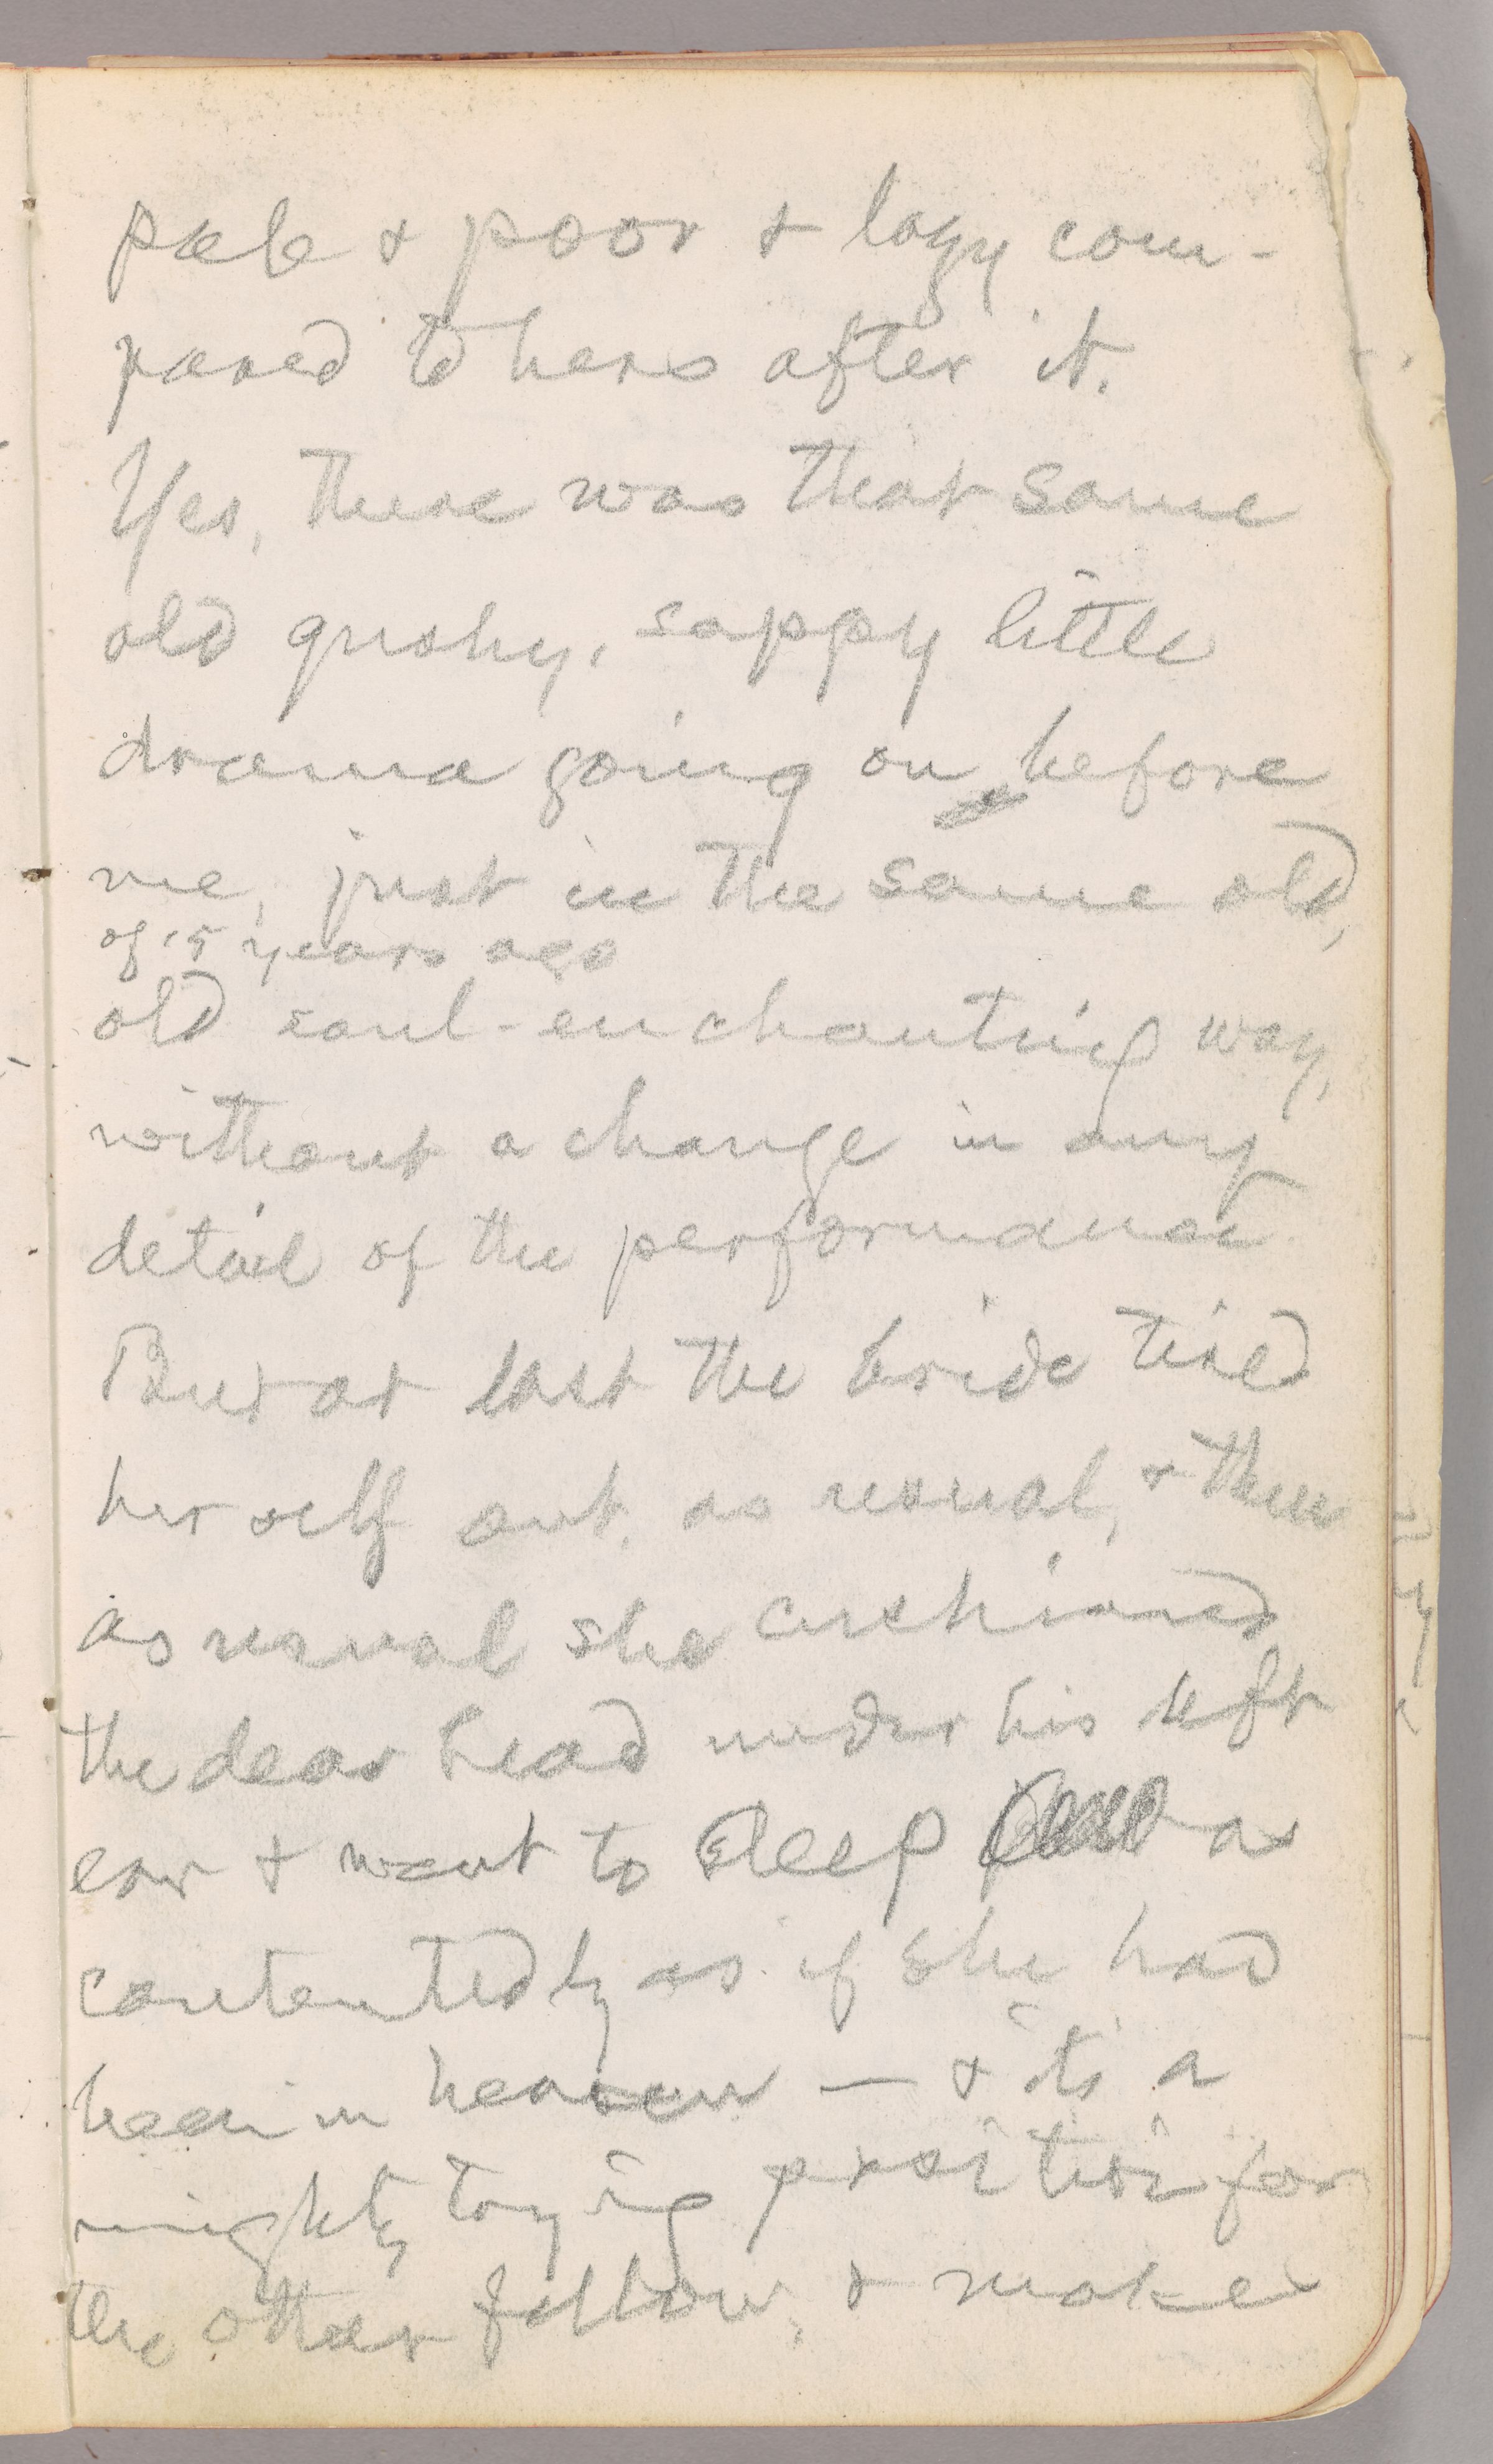 pale & poor & lazy com-
pared to hers after it.
Yes, there was that same
old gushy, sappy little
drama going on before
me, just in the same old,
of 15 years ago
old soul-enchanting way,
without a change in any
detail of the performance
But at last the bride tired
herself out, as usual, & then
as usual she cushioned
the dear head under his left
ear & went to sleep as
contentedly as if she had
been in heaven — & it's a
mighty trying position for
the other fellow, & makes